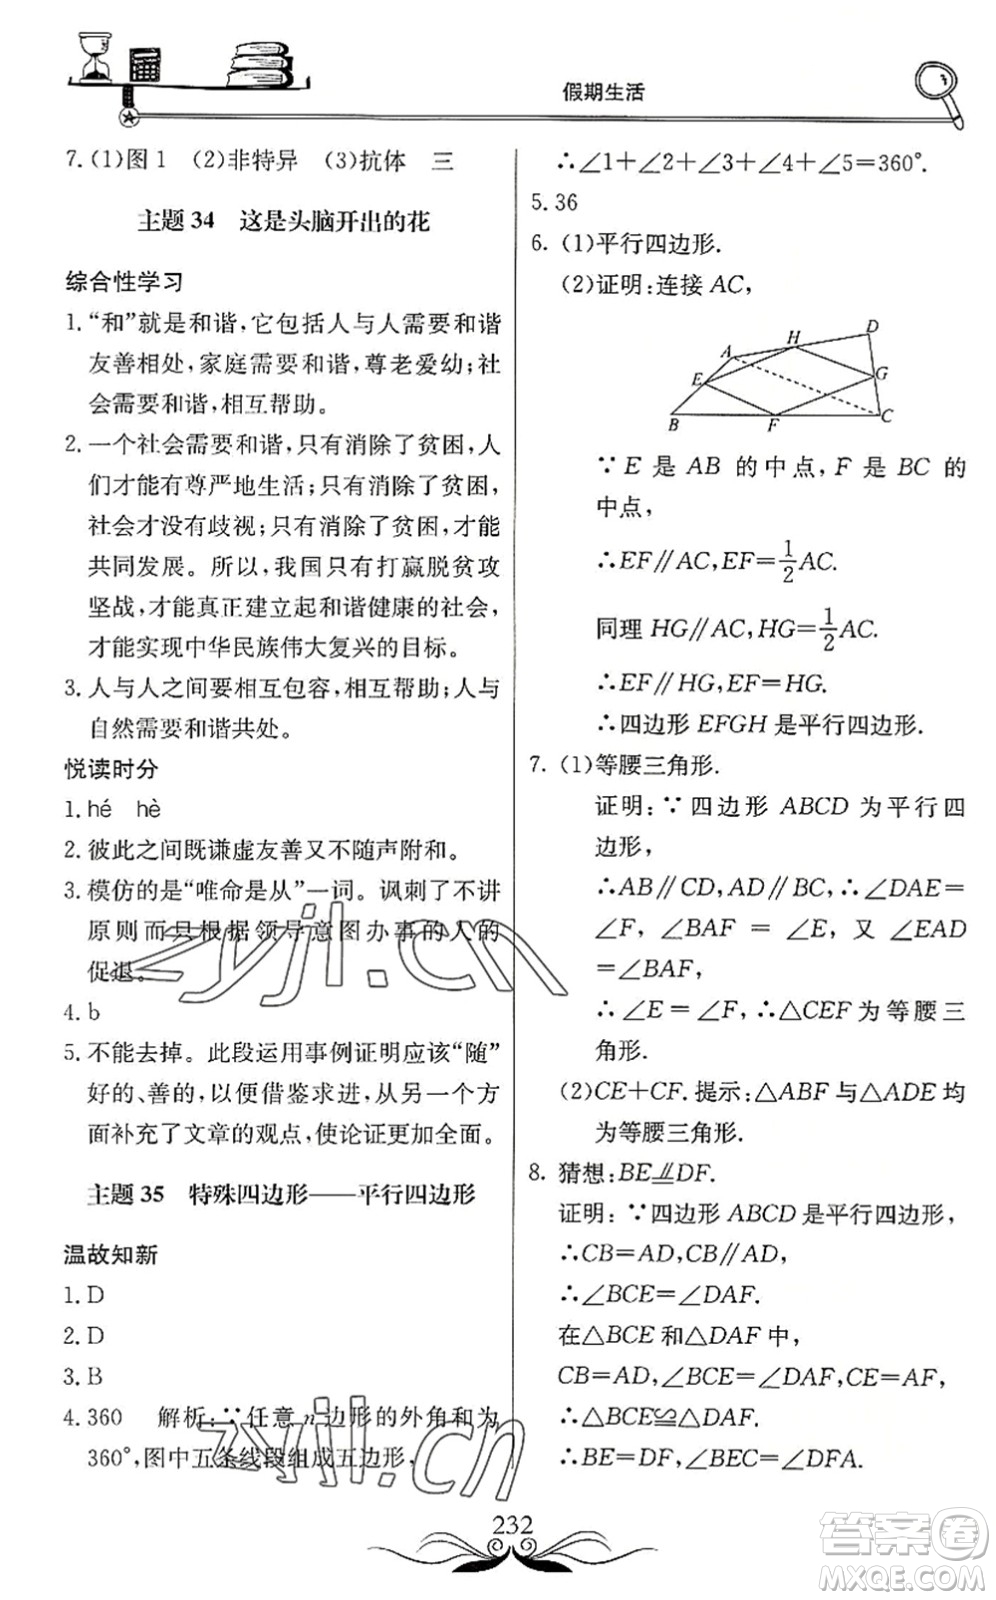 假期生活
7.(1)图1 (2)非特异 (3)抗体 三
主题 34 这是头脑开出的花
综合性学习
1.“和”就是和谐,它包括人与人需要和谐
友善相处,家庭需要和谐,尊老爱幼;社
会需要和谐,相互帮助。
2.一个社会需要和谐,只有消除了贫困,人
们才能有尊严地生活;只有消除了贫困,
社会才没有歧视;只有消除了贫困,才能
共同发展。所以,我国只有打赢脱贫攻
坚战,才能真正建立起和谐健康的社会,
才能实现中华民族伟大复兴的目标。
3.人与人之间要相互包容,相互帮助;人与
自然需要和谐共处。
悦读时分
1.hé hè
2.彼此之间既谦虚友善又不随声附和。
3.模仿的是“唯命是从”一词。讽刺了不讲
原则而只根据领导意图办事的人的
促退。
4.b
5.不能去掉。此段运用事例证明应该“随”
好的、善的,以便借鉴求进,从另一个方
面补充了文章的观点,使论证更加全面。
主题 35 特殊四边形——平行四边形
温故知新
1.D
2.D
3.B
4.360 解析:∵任意n边形的外角和为
360°,图中五条线段组成五边形,
∴∠1+∠2+∠3+∠4+∠5=360°.
5.36
6.(1)平行四边形.
(2)证明:连接AC,
A
H
D
E
G
B
F
C
∵E是AB的中点,F是BC的
中点,
∴EF∥AC,EF=1/2AC.
同理HG∥AC,HG=1/2AC.
∴EF∥HG,EF=HG.
∴四边形EFGH是平行四边形.
7.(1)等腰三角形.
证明:∵四边形ABCD为平行四
边形,
∴AB∥CD,AD∥BC,∴∠DAE=
∠F,∠BAF=∠E,又∠EAD
=∠BAF,
∴∠E=∠F,∴△CEF为等腰三
角形.
(2)CE+CF.提示:△ABF与△ADE均
为等腰三角形.
8.猜想:BE⫫DF.
证明:∵四边形ABCD是平行四边形,
∴CB=AD,CB∥AD,
∴∠BCE=∠DAF.
在△BCE和△DAF中,
CB=AD,∠BCE=∠DAF,CE=AF,
∴△BCE≌△DAF.
∴BE=DF,∠BEC=∠DFA.
232
zyjl.cn
zyjl.cn
答案卷
MXQE.COM